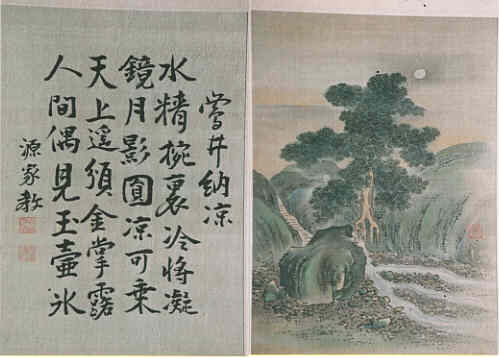 鶯井納凉
水精椀裏冷將凝
鏡月影圓凉可乗
天上遥須金掌露
人間偶見玉壷氷
源家教